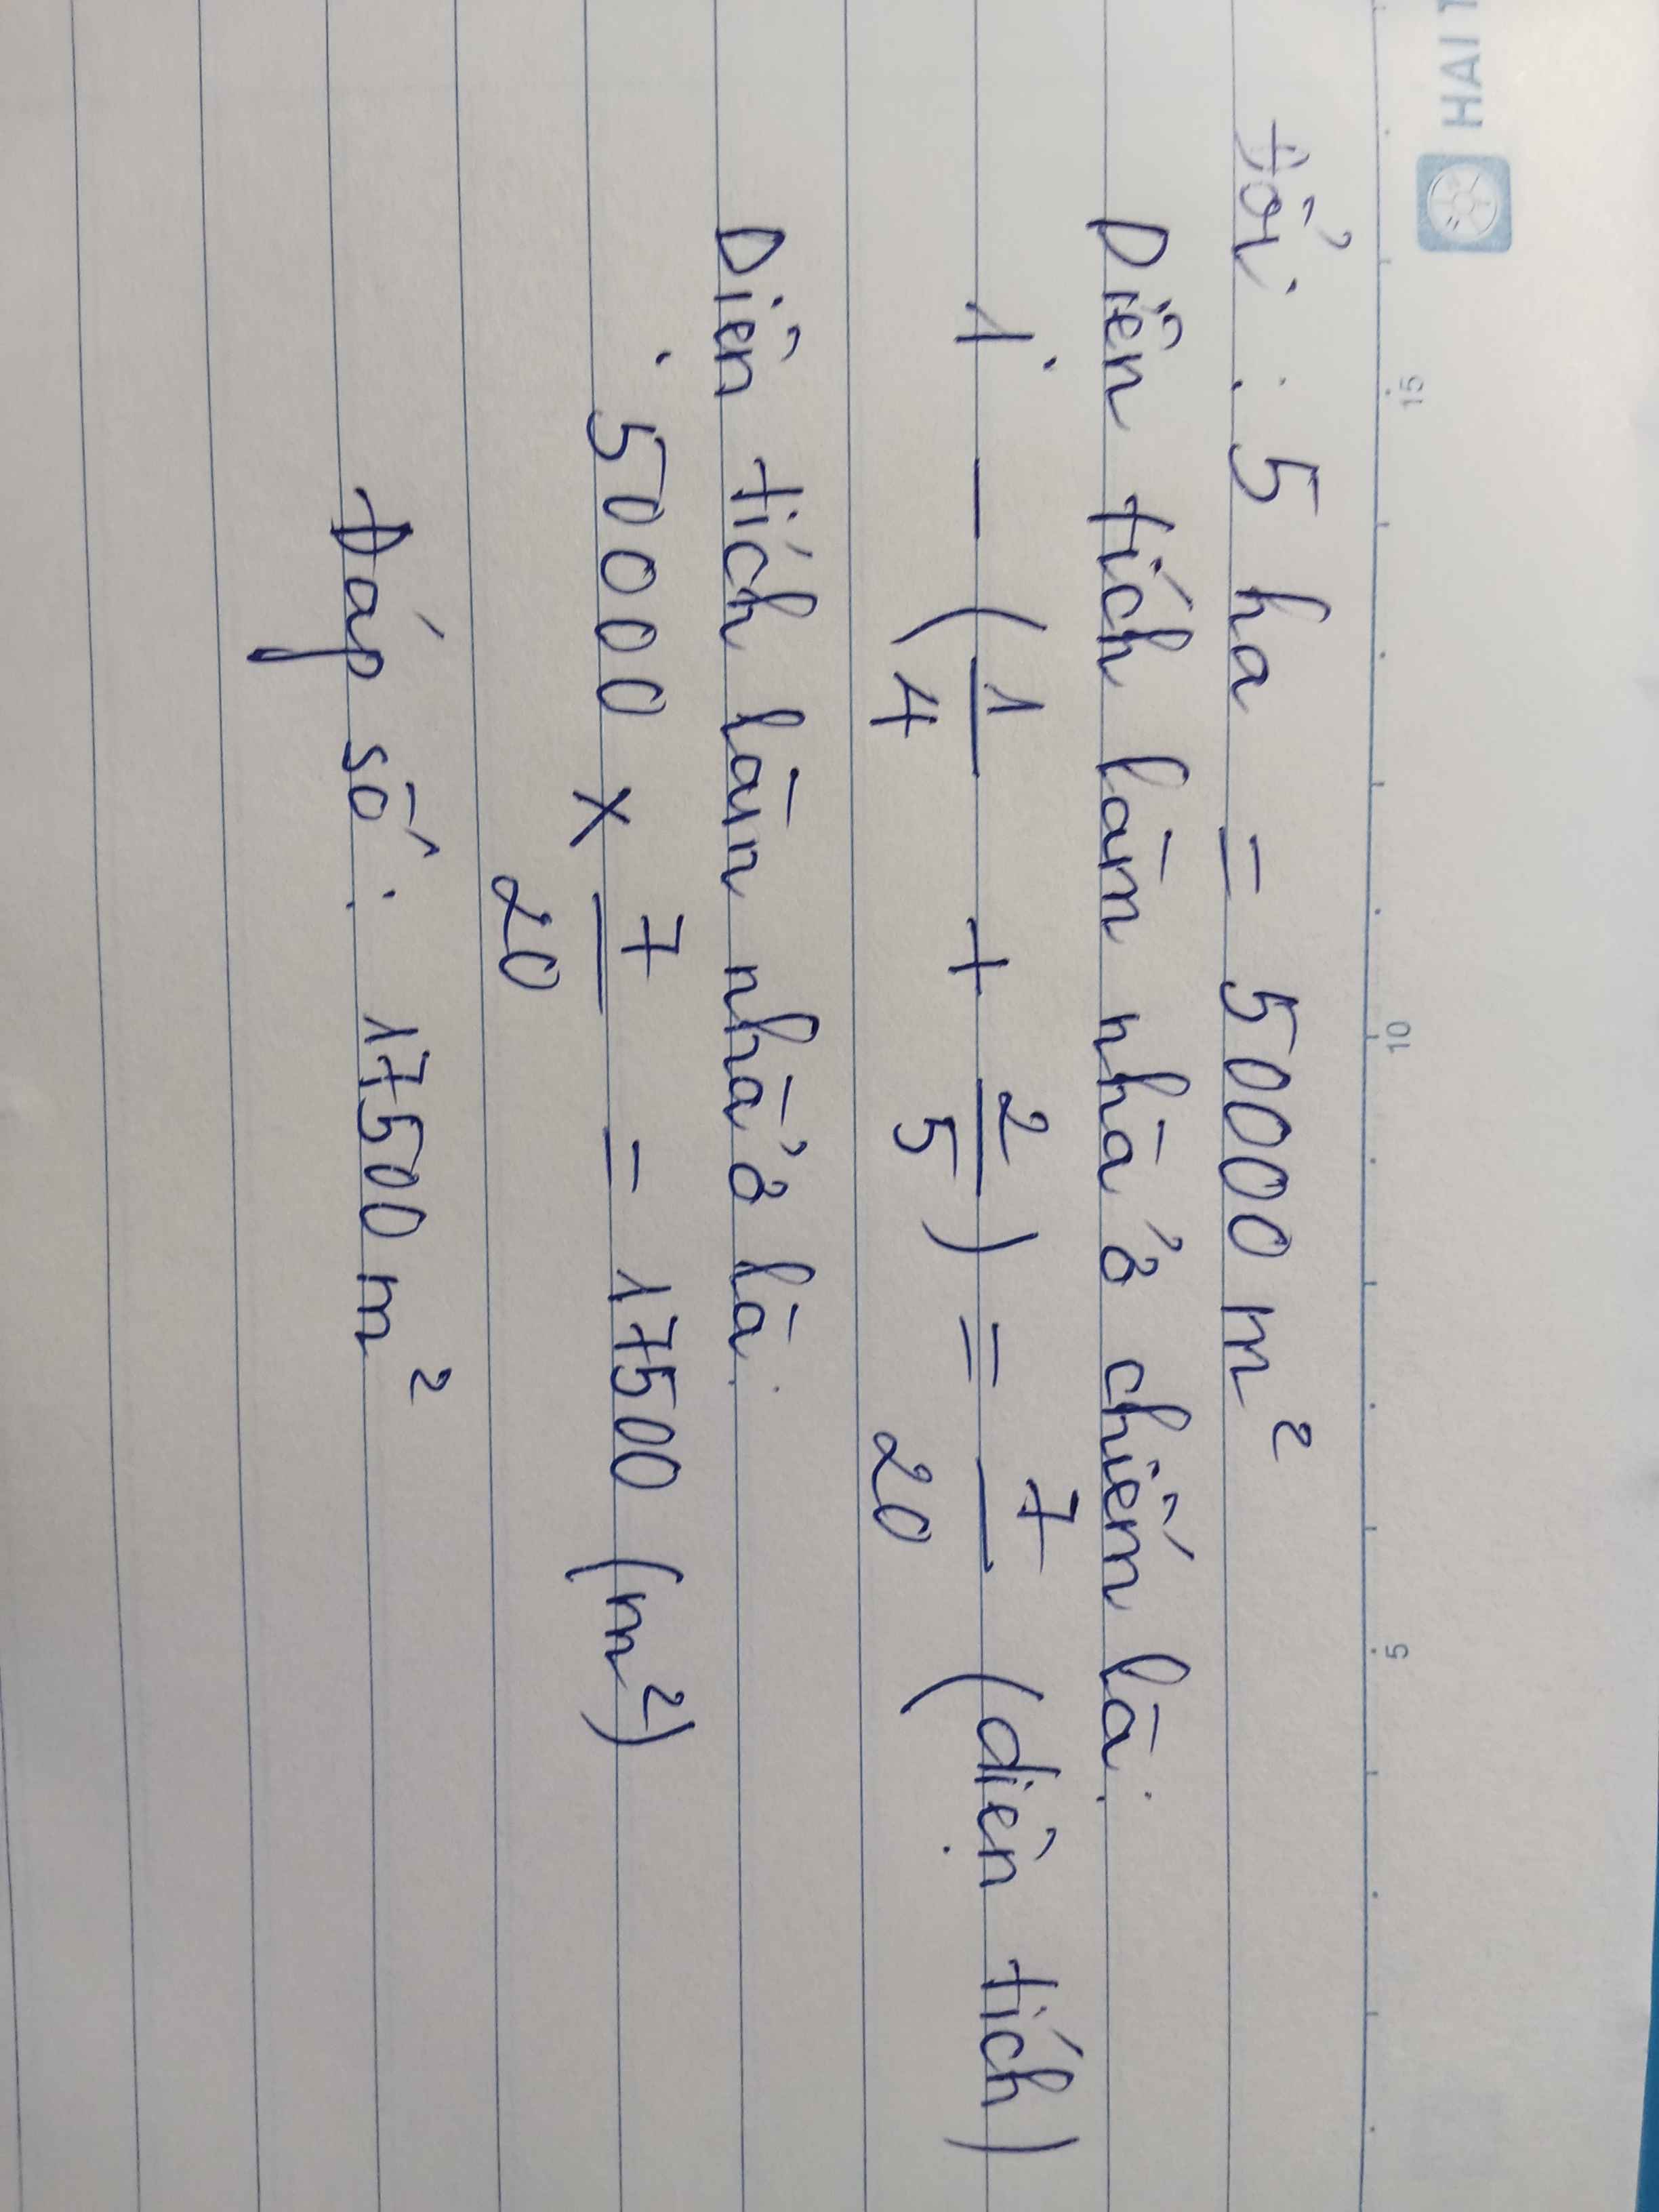 HAI T
15 10 5
Đổi : 5 ha = 50000 m²
Diện tích làm nhà ở chiếm là:
1 - ( 1/4 + 2/5 ) = 7/20 (diện tích)
Diện tích làm nhà ở là:
50000 x 7/20 = 17500 (m²)
Đáp số: 17500 m²